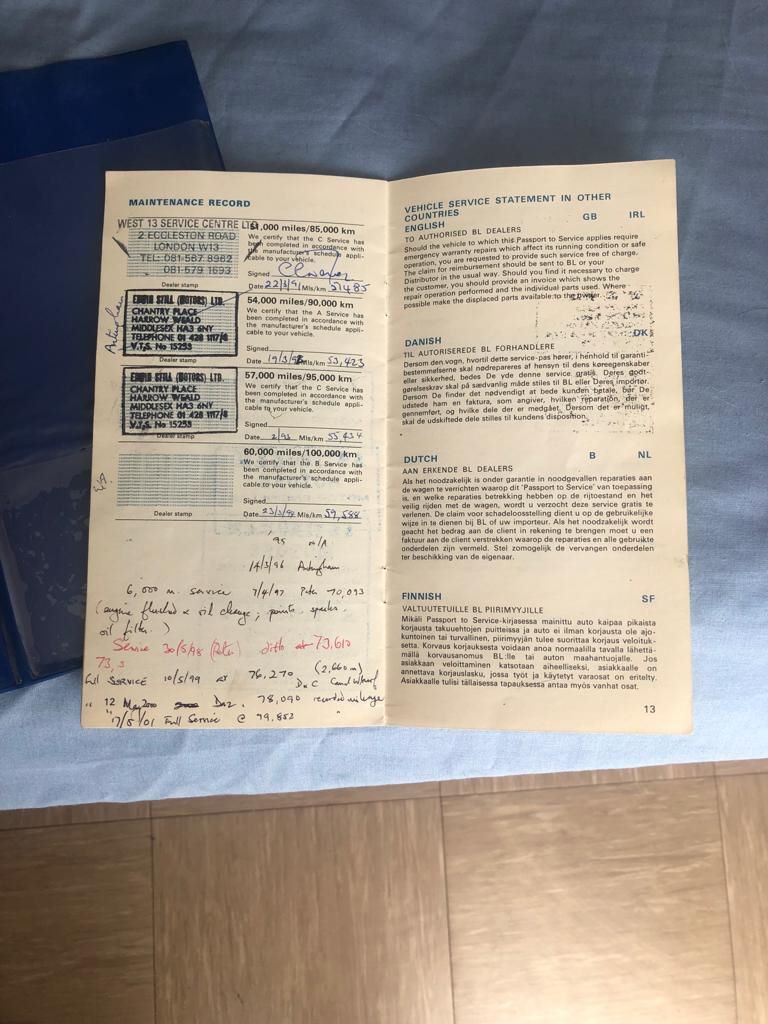 MAINTENANCE RECORD
WEST 13 SERVICE CENTRE LTD
2 ECCLESTON ROAD
LONDON W13
TEL: 081-567 8962
081-579 1693
Dealer stamp
51,000 miles/85,000 km
We certify that the C Service has
been completed in accordance with
the manufacturer's schedule appli-
cable to your vehicle.
Signed
Date 22/3/91 Mls/km 51485
EDWIN STILL (MOTORS) LTD.
CHANTRY PLACE
HARROW WEALD
MIDDLESEX HA3 6NY
TELEPHONE 01 428 1117/8
V.T.S. No 15253
Dealer stamp
54,000 miles/90,000 km
We certify that the A Service has
been completed in accordance with
the manufacturer's schedule appli-
cable to your vehicle.
Signed
Date 19/3/92 Mls/km 53,423
EDWIN STILL (MOTORS) LTD.
CHANTRY PLACE
HARROW WEALD
MIDDLESEX HA3 6NY
TELEPHONE 01 428 1117/8
V.T.S. No 15253
Dealer stamp
57,000 miles/95,000 km
We certify that the C Service has
been completed in accordance with
the manufacturer's schedule appli-
cable to your vehicle.
Signed
Date 2/93 Mls/km 55,434
Dealer stamp
60,000 miles/100,000 km
We certify that the B Service has
been completed in accordance with
the manufacturer's schedule appli-
cable to your vehicle.
Signed
Date 23/3/94 Mls/km 59,588
'95 n/A
14/3/96
6,000 m. service 7/4/97 Peter 70,093
(engine flushed & oil change; points, sparks,
oil filter.)
Service 30/5/98 (Peter) ditto at 73,610
73,3
Full SERVICE 10/5/99 at 76,270 (2,660 m)
" 12 May 2000 78,090 recorded mileage
" 17/5/01 Full Service @ 79,852 "
VEHICLE SERVICE STATEMENT IN OTHER
COUNTRIES
ENGLISH GB IRL
TO AUTHORISED BL DEALERS
Should the vehicle to which this Passport to Service applies require
emergency warranty repairs which affect its running condition or safe
operation, you are requested to provide such service free of charge.
The claim for reimbursement should be sent to BL or your
Distributor in the usual way. Should you find it necessary to charge
the customer, you should provide an invoice which shows the
repair operation performed and the individual parts used. Where
possible make the displaced parts available to the owner.
DANISH DK
TIL AUTORISEREDE BL FORHANDLERE
Dersom den vogn, hvortil dette service-pas hører, i henhold til garanti-
bestemmelserne skal nødrepareres af hensyn til dens køreegenskaber
eller sikkerhed, bedes De yde denne service gratis. Deres godt-
gørelseskrav skal på sædvanlig måde stiles til BL eller Deres importør.
Dersom De finder det nødvendigt at bede kunden betale, bør De
udstede ham en faktura, som angiver, hvilken reparation, der er
gennemført, og hvilke dele der er medgået. Dersom det er muligt,
skal de udskiftede dele stilles til kundens disposition.
DUTCH B NL
AAN ERKENDE BL DEALERS
Als het noodzakelijk is onder garantie in noodgevallen reparaties aan
de wagen te verrichten waarop dit 'Passport to Service' van toepassing
is, en welke reparaties betrekking hebben op de rijtoestand en het
veilig rijden met de wagen, wordt u verzocht deze service gratis te
verlenen. De claim voor schadeloosstelling dient u op de gebruikelijke
wijze in te dienen bij BL of uw importeur. Als het noodzakelijk wordt
geacht het bedrag aan de client in rekening te brengen moet u een
faktuur aan de client verstrekken waarop de reparaties en alle gebruikte
onderdelen zijn vermeld. Stel zomogelijk de vervangen onderdelen
ter beschikking van de eigenaar.
FINNISH SF
VALTUUTETUILLE BL PIIRIMYYJILLE
Mikäli Passport to Service-kirjasessa mainittu auto kaipaa pikaista
korjausta takuuehtojen puitteissa ja auto ei ilman korjausta ole ajo-
kuntoinen tai turvallinen, piirimyyjän tulee suorittaa korjaus veloituk-
setta. Korvaus korjauksesta voidaan anoa normaalilla tavalla lähettä-
mällä korvausanomus BL:lle tai auton maahantuojalle. Jos
asiakkaan veloittaminen katsotaan aiheelliseksi, asiakkaalle on
annettava korjauslasku, jossa työt ja käytetyt varaosat on eritelty.
Asiakkaalle tulisi tällaisessa tapauksessa antaa myös vanhat osat.
13